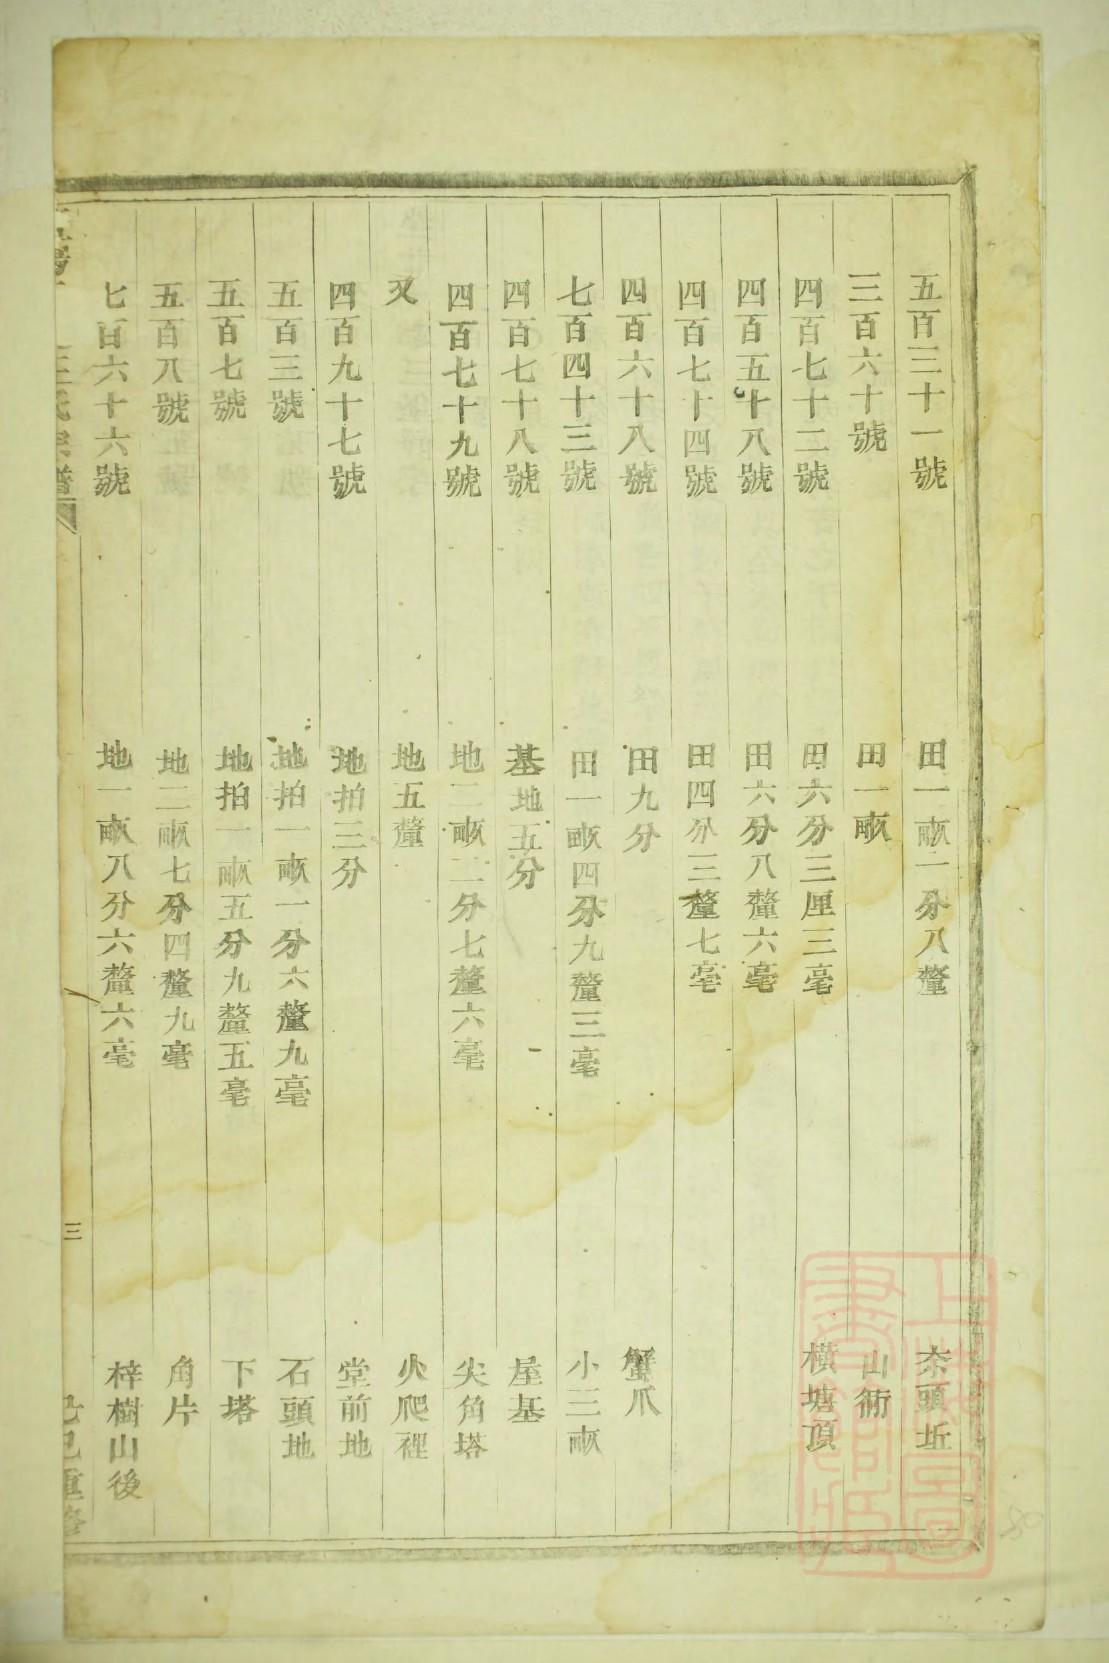 五百三十一號 田一畝二分八釐 夳頭坵
三百六十號 田一畝 山衕
四百七十二號 田六分三厘三毫 橫塘頂
四百五十八號 田六分八釐六毫
四百七十四號 田四分三釐七毫
四百六十八號 田九分 蟹爪
七百四十三號 田一畝四分九釐三毫 小三畝
四百七十八號 基地五分 屋基
四百七十九號 地二畝二分七釐六毫 尖角塔
又 地五釐 火爬裡
四百九十七號 地拍三分 堂前地
五百三號 地拍一畝一分六釐九毫 石頭地
五百七號 地拍一畝五分九釐五毫 下塔
五百八號 地二畝七分四釐九毫 角片
七百六十六號 地一畝八分六釐六毫 梓樹山後
王氏宗譜 三 己巳重修
上海圖書館藏